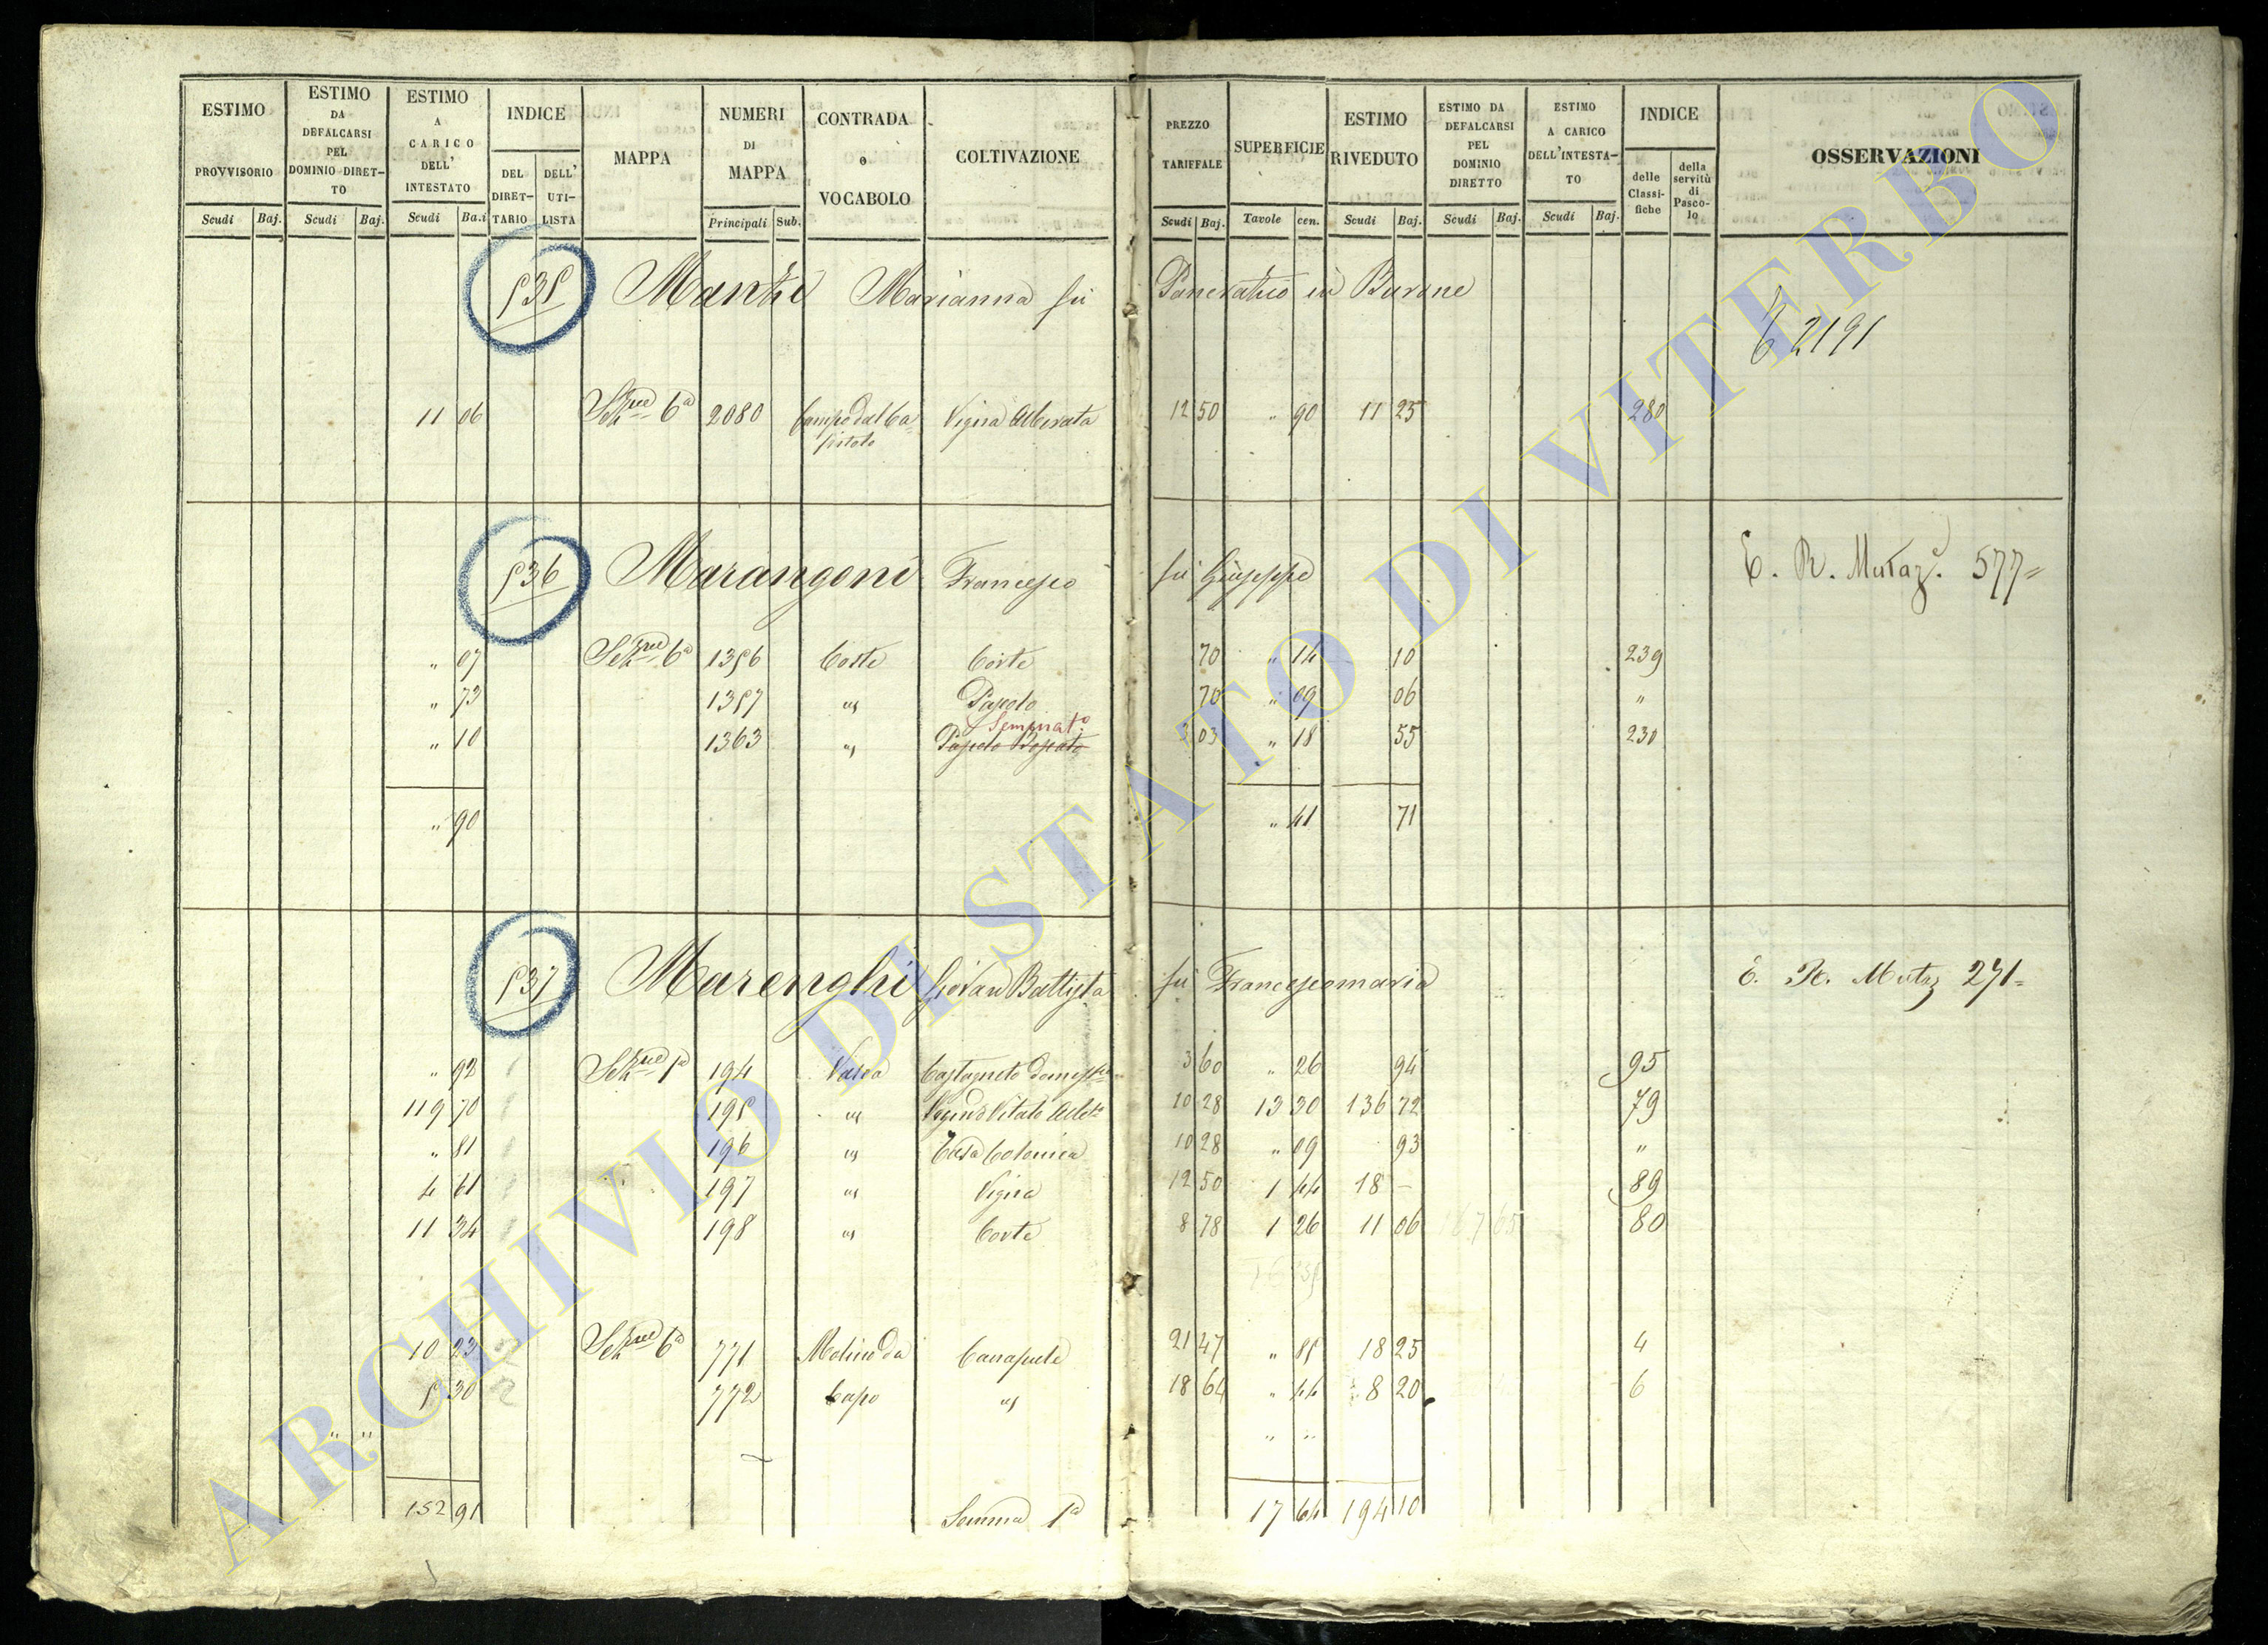 ESTIMO PROVVISORIO Scudi Baj.
ESTIMO DA DEFALCARSI PEL DOMINIO DIRET-TO Scudi Baj.
ESTIMO A CARICO DELL' INTESTATO Scudi Ba.i
INDICE DEL DIRET-TARIO DELL' UTI-LISTA
MAPPA
NUMERI DI MAPPA Principali Sub.
CONTRADA o VOCABOLO
COLTIVAZIONE
PREZZO TARIFFALE Scudi Baj.
SUPERFICIE Tavole cen.
ESTIMO RIVEDUTO Scudi Baj.
ESTIMO DA DEFALCARSI PEL DOMINIO DIRETTO Scudi Baj.
ESTIMO A CARICO DELL'INTESTA-TO Scudi Baj.
INDICE delle Classi-fiche della servitù di Pasco-lo
OSSERVAZIONI
535 Mantri Marianna fu Pancratio in Barone
2191
11 06 Sez.ne 6a 2080 Campo dal Ca=pitolo Vigna Alberata 12 50 " 90 11 25 280
536 Marangoni Francesco fu Giuseppe E. R. Mutaz. 577=
" 07 Sez.ne 6a 1356 Coste Corte 70 " 14 10 239
" 73 1357 " Pascolo 70 " 09 06 "
Seminat.o
" 10 1363 " Pascolo Boscato 3 03 " 18 55 230
" 90 " 41 71
537 Marenghi Giovan Battista fu Francescomaria E. R. Mutaz 271=
" 92 Sez.ne 1a 194 Valda Castagneto domest. 3 60 " 26 94 95
119 70 195 " 10 28 13 30 136 72 79
" 81 196 " Casa Colonica 10 28 " 09 93 "
4 61 197 " Vigna 12 50 1 44 18 - 89
11 34 198 " Corte 8 78 1 26 11 06 80
10 23 Sez.ne 6a 771 Molino da Canapule 21 47 " 85 18 25 4
5 30 772 Capo " 18 64 " 44 8 20 6
" " " "
152 91 Somma 1a 17 64 194 10
ARCHIVIO DI STATO DI VITERBO